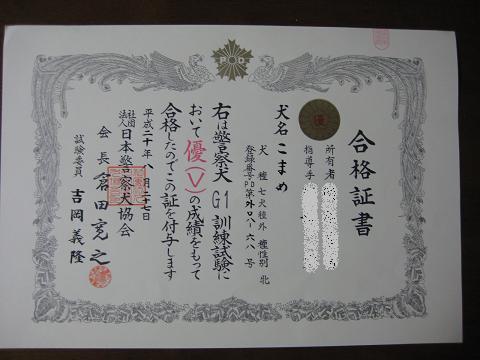 合格証書
所有者
指導手
優
犬名 こまめ
犬種 七犬種外 種性別 牝
登録番号PD第外ロハ一六八号
右は警察犬G1訓練試験に
おいて優(V)の成績をもって
合格したのでこの証を付与します
平成二十年 八月二十七日
社団法人 日本警察犬協会
会長 倉田寛之
試験委員 吉岡義隆
PD